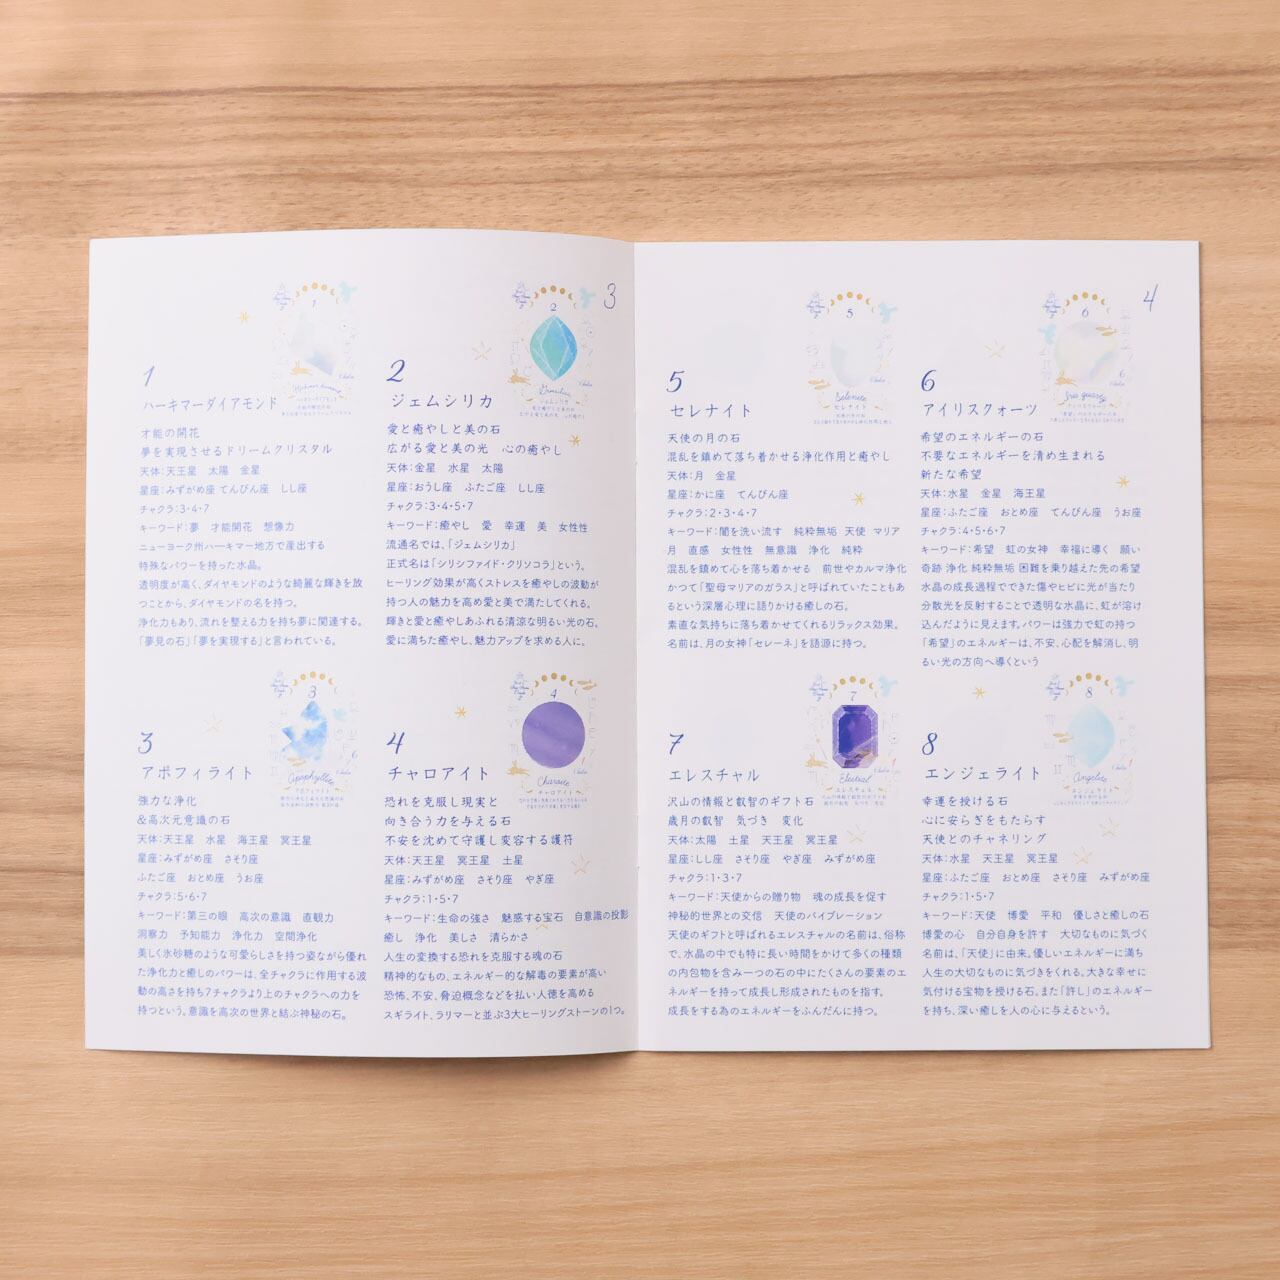 3
1
ハーキマーダイアモンド
才能の開花
夢を実現させるドリームクリスタル
天体:天王星 太陽 金星
星座:みずがめ座 てんびん座 しし座
チャクラ:3・4・7
キーワード:夢 才能開花 想像力
ニューヨーク州ハーキマー地方で産出する
特殊なパワーを持った水晶。
透明度が高く、ダイヤモンドのような綺麗な輝きを放
つことから、ダイヤモンドの名を持つ。
浄化力もあり、流れを整える力を持ち夢に関連する。
「夢見の石」「夢を実現する」と言われている。
2
2
Gemsilica
ジェムシリカ
ジェムシリカ
愛と癒やしと美の石
広がる愛と美の光 心の癒やし
天体:金星 水星 太陽
星座:おうし座 ふたご座 しし座
チャクラ:3・4・5・7
キーワード:癒やし 愛 幸運 美 女性性
流通名では、「ジェムシリカ」
正式名は「シリシファイド・クリソコラ」という。
ヒーリング効果が高くストレスを癒やしの波動が
持つ人の魅力を高め愛と美で満たしてくれる。
輝きと愛と癒やしあふれる清涼な明るい光の石。
愛に満ちた癒やし、魅力アップを求める人に。
3
3
Apophyllite
アポフィライト
アポフィライト
強力な浄化
&高次元意識の石
天体:天王星 水星 海王星 冥王星
星座:みずがめ座 さそり座
ふたご座 おとめ座 うお座
チャクラ:5・6・7
キーワード:第三の眼 高次の意識 直観力
洞察力 予知能力 浄化力 空間浄化
美しく氷砂糖のような可愛らしさを持つ姿ながら優れ
た浄化力と癒しのパワーは、全チャクラに作用する波
動の高さを持ち7チャクラより上のチャクラへの力を
持つという。意識を高次の世界と結ぶ神秘の石。
4
4
Charoite
チャロアイト
チャロアイト
恐れを克服し現実と
向き合う力を与える石
不安を沈めて守護し変容する護符
天体:天王星 冥王星 土星
星座:みずがめ座 さそり座 やぎ座
チャクラ:1・5・7
キーワード:生命の強さ 魅惑する宝石 自意識の投影
癒し 浄化 美しさ 清らかさ
人生の変換する恐れを克服する魂の石
精神的なもの、エネルギー的な解毒の要素が高い
恐怖、不安、脅迫概念などを払い人徳を高める
スギライト、ラリマーと並ぶ3大ヒーリングストーンの1つ。
4
5
5
Selenite
セレナイト
セレナイト
天使の月の石
混乱を鎮めて落ち着かせる浄化作用と癒やし
天体:月 金星
星座:かに座 てんびん座
チャクラ:2・3・4・7
キーワード:闇を洗い流す 純粋無垢 天使 マリア
月 直感 女性性 無意識 浄化 純粋
混乱を鎮めて心を落ち着かせる 前世やカルマ浄化
かつて「聖母マリアのガラス」と呼ばれていたこともあ
るという深層心理に語りかける癒しの石。
素直な気持ちに落ち着かせてくれるリラックス効果。
名前は、月の女神「セレーネ」を語源に持つ。
6
6
Iris quartz
アイリスクォーツ
アイリスクォーツ
希望のエネルギーの石
不要なエネルギーを清め生まれる
新たな希望
天体:水星 金星 海王星
星座:ふたご座 おとめ座 てんびん座 うお座
チャクラ:4・5・6・7
キーワード:希望 虹の女神 幸福に導く 願い
奇跡 浄化 純粋無垢 困難を乗り越えた先の希望
水晶の成長過程でできた傷やヒビに光が当たり
分散光を反射することで透明な水晶に、虹が溶け
込んだように見えます。パワーは強力で虹の持つ
「希望」のエネルギーは、不安、心配を解消し、明
るい光の方向へ導くという
7
7
エレスチャル
エレスチャル
沢山の情報と叡智のギフト石
歳月の叡智 気づき 変化
天体:太陽 土星 天王星 冥王星
星座:しし座 さそり座 やぎ座 みずがめ座
チャクラ:1・3・7
キーワード:天使からの贈り物 魂の成長を促す
神秘的世界との交信 天使のバイブレーション
天使のギフトと呼ばれるエレスチャルの名前は、俗称
で、水晶の中でも特に長い時間をかけて多くの種類
の内包物を含み一つの石の中にたくさんの要素のエ
ネルギーを持って成長し形成されたものを指す。
成長をする為のエネルギーをふんだんに持つ。
8
8
Angelite
エンジェライト
エンジェライト
幸運を授ける石
心に安らぎをもたらす
天使とのチャネリング
天体:水星 天王星 冥王星
星座:ふたご座 おとめ座 さそり座 みずがめ座
チャクラ:1・5・7
キーワード:天使 博愛 平和 優しさと癒しの石
博愛の心 自分自身を許す 大切なものに気づく
名前は、「天使」に由来。優しいエネルギーに満ち
人生の大切なものに気づきをくれる。大きな幸せに
気付ける宝物を授ける石。また「許し」のエネルギー
を持ち、深い癒しを人の心に与えるという。